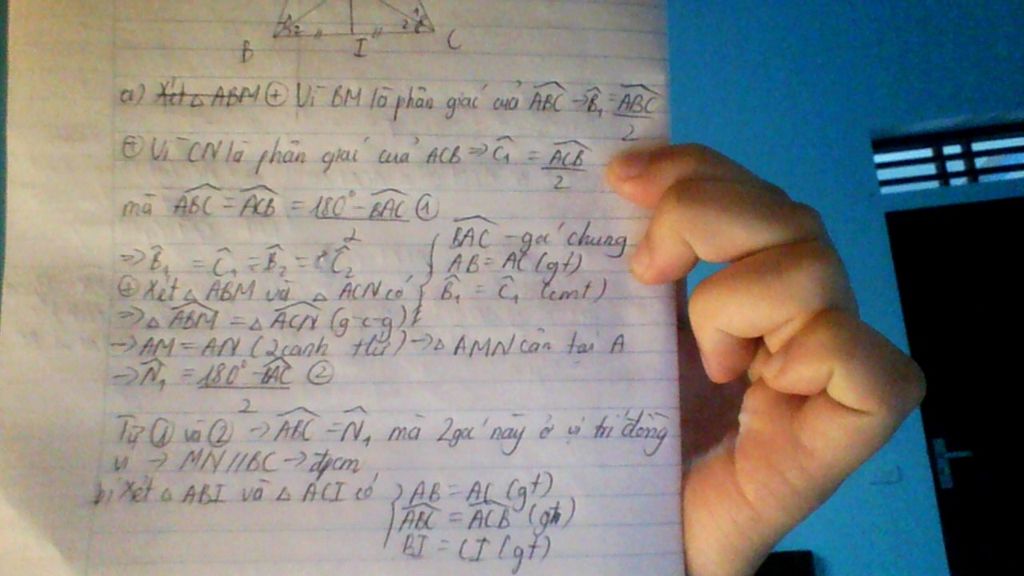 B₂ 2 C
B I C
a) Xét △ ABM ⊕ Vì BM là phân giác của ABC → B₁ = ABC/2
⊕ Vì CN là phân giác của ACB ⇒ C₁ = ACB/2
mà ABC = ACB = 180° - BAC/2 ①
⇒ B₁ = C₁ = B₂ = C₂
{ BAC - góc chung
AB = AC (gt)
⊕ Xét △ ABM và △ ACN có { B₁ = C₁ (cmt)
⇒ △ ABM = △ ACN (g-c-g)
→ AM = AN (2 cạnh tứ) → △ AMN cân tại A
→ N₁ = 180° - BAC/2 ②
Từ ① và ② → ABC = N₁ mà 2 góc này ở vị trí đồng
vị → MN // BC → đpcm
b) Xét △ ABI và △ ACI có { AB = AC (gt)
ABC = ACB (gt)
BI = CI (gt)